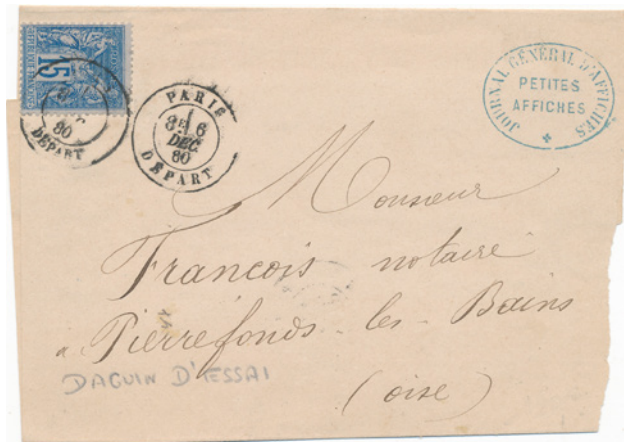 15
80
DÉPART
PARIS
8E 6
DEC.
80
DÉPART
JOURNAL GÉNÉRAL D'AFFICHES
PETITES
AFFICHES
Monsieur
François notaire
a Pierrefonds-les-Bains
(oise)
DAGUIN D'ESSAI